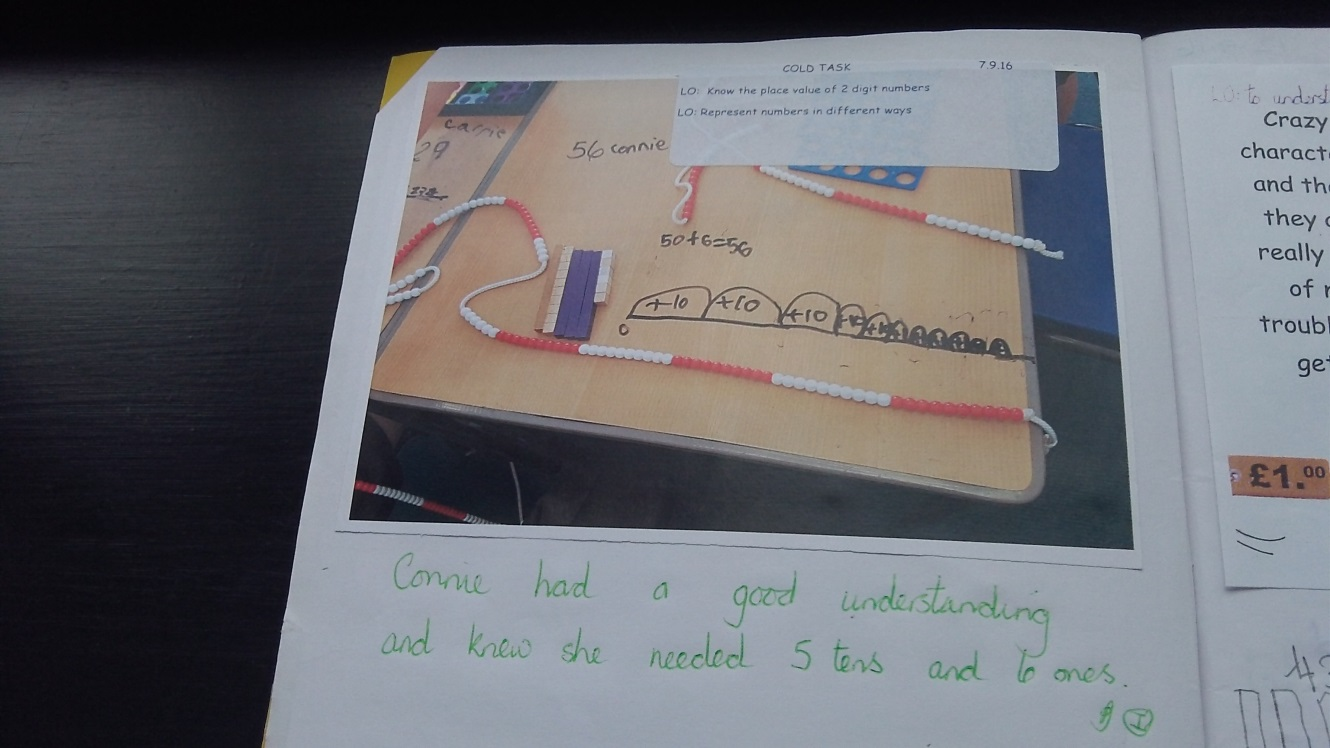 COLD TASK 7.9.16
LO: Know the place value of 2 digit numbers
LO: Represent numbers in different ways
connie
29
56 connie
50+6=56
+10 +10 +10
0
Connie had a good understanding
and knew she needed 5 tens and 6 ones.
LO: to underst
Crazy
charact
and th
they
really
of
troubl
ge
£1.00